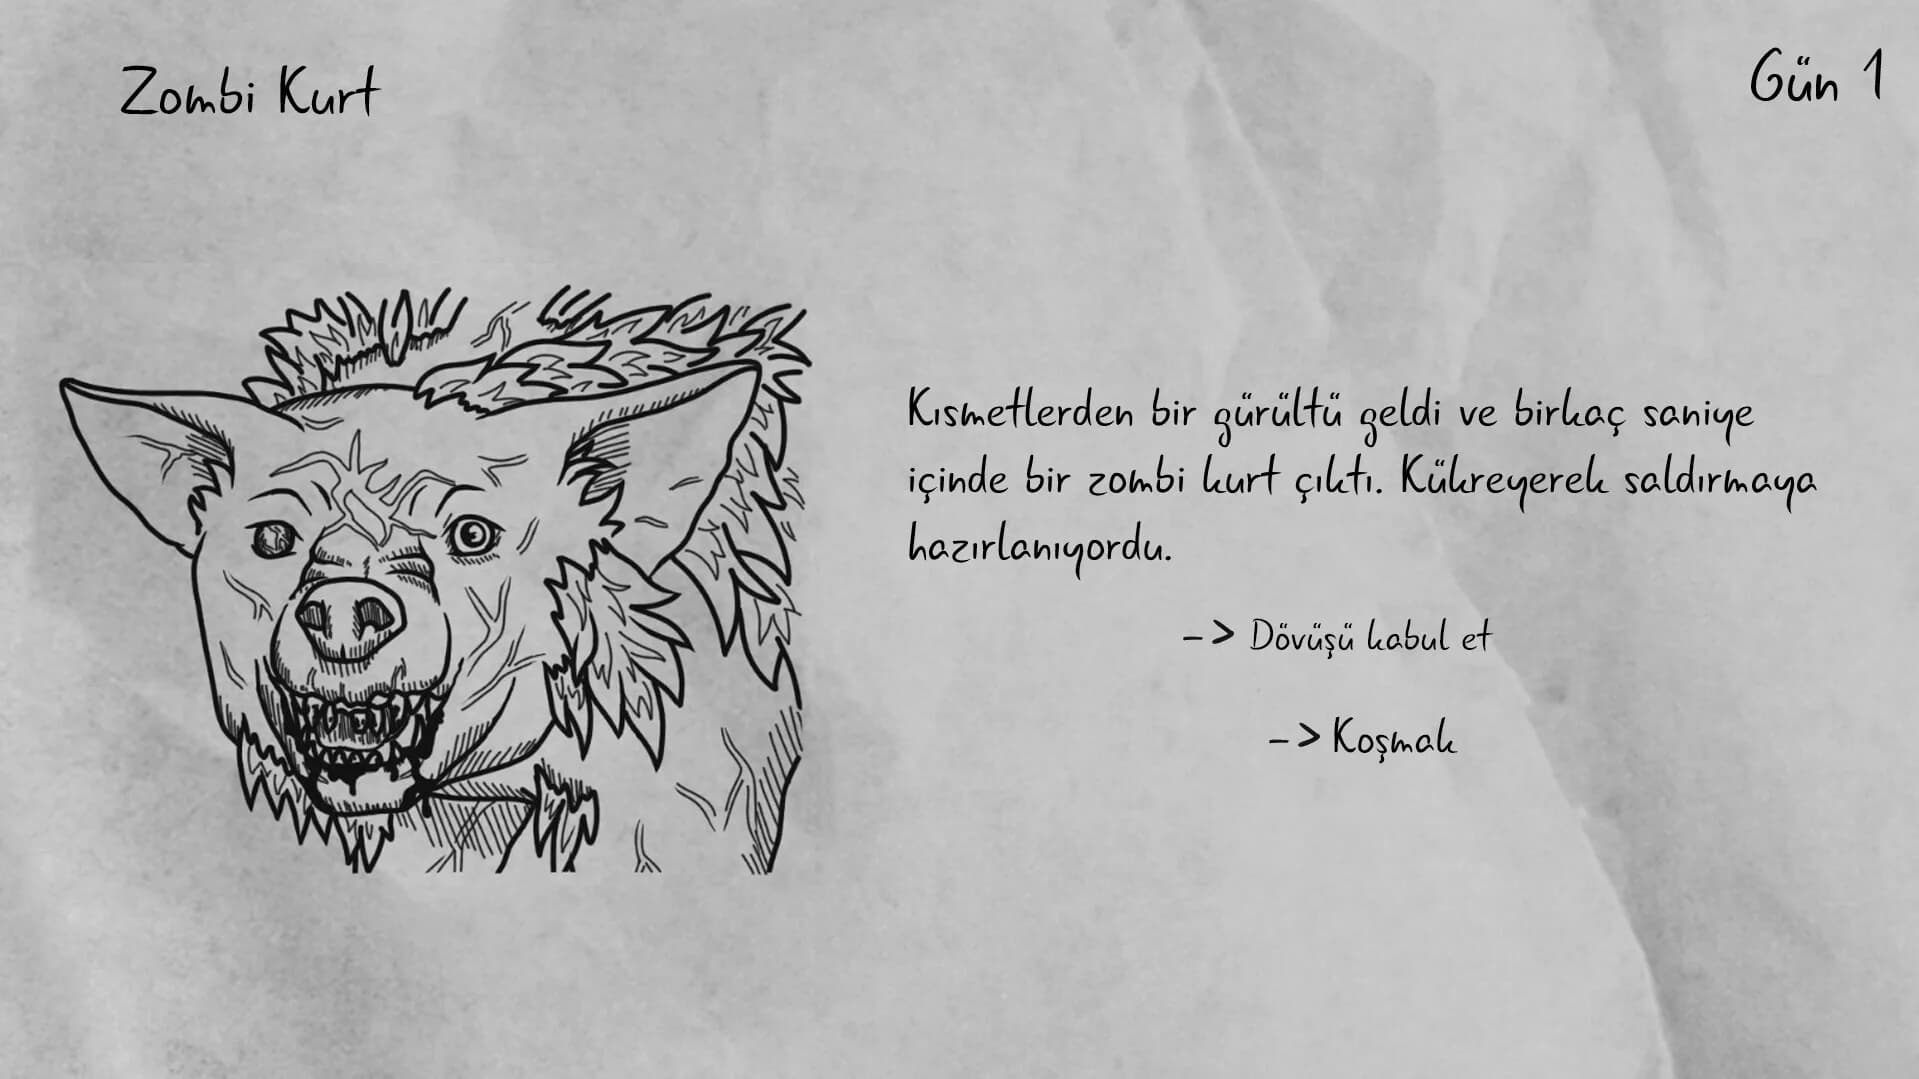 Zombi Kurt
Gün 1
Kısmetlerden bir gürültü geldi ve birkaç saniye
içinde bir zombi kurt çıktı. Kükreyerek saldırmaya
hazırlanıyordu.
-> Dövüşü kabul et
-> Koşmak